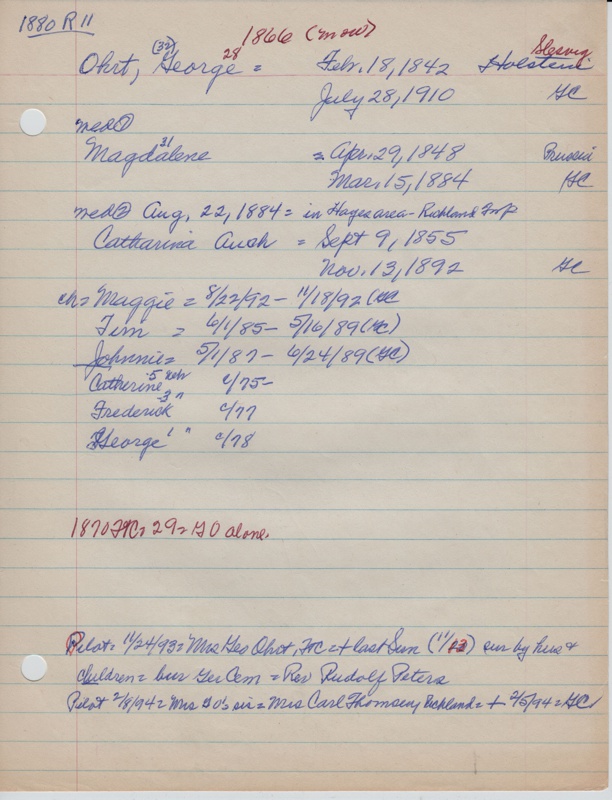 1880 R 11
1866 (mow)
(32) 28 Slesvig
Ohrt, George = Feb. 18, 1842 Holstein
July 28, 1910 GC
med ①
31
Magdalene = Apr. 29, 1848 Prussia
Mar. 15, 1884 GC
med ② Aug. 22, 1884 = in Hayes area - Richland Twp
Catharina Auch = Sept 9, 1855
Nov. 13, 1892 GC
ch = Maggie = 8/22/92 - 11/18/92 (GC
Tim = 6/1/85 - 5/16/89 (GC)
Johnnie = 5/1/87 - 6/24/89 (GC)
Catherine -5 Neb c/75-
Frederick -3 " c/77
George 1 " c/78
1870 FtC = 29 = GO alone.
Pilot = 11/24/93 = Mrs Geo Ohrt, FtC = + last Sun (11/13) sur by hus +
children = bur Ger Cem = Rev Rudolf Peters
Pilot 2/8/94 = Mrs GO's sis = Mrs Carl Thomsen, Richland = + 2/5/94 = GC